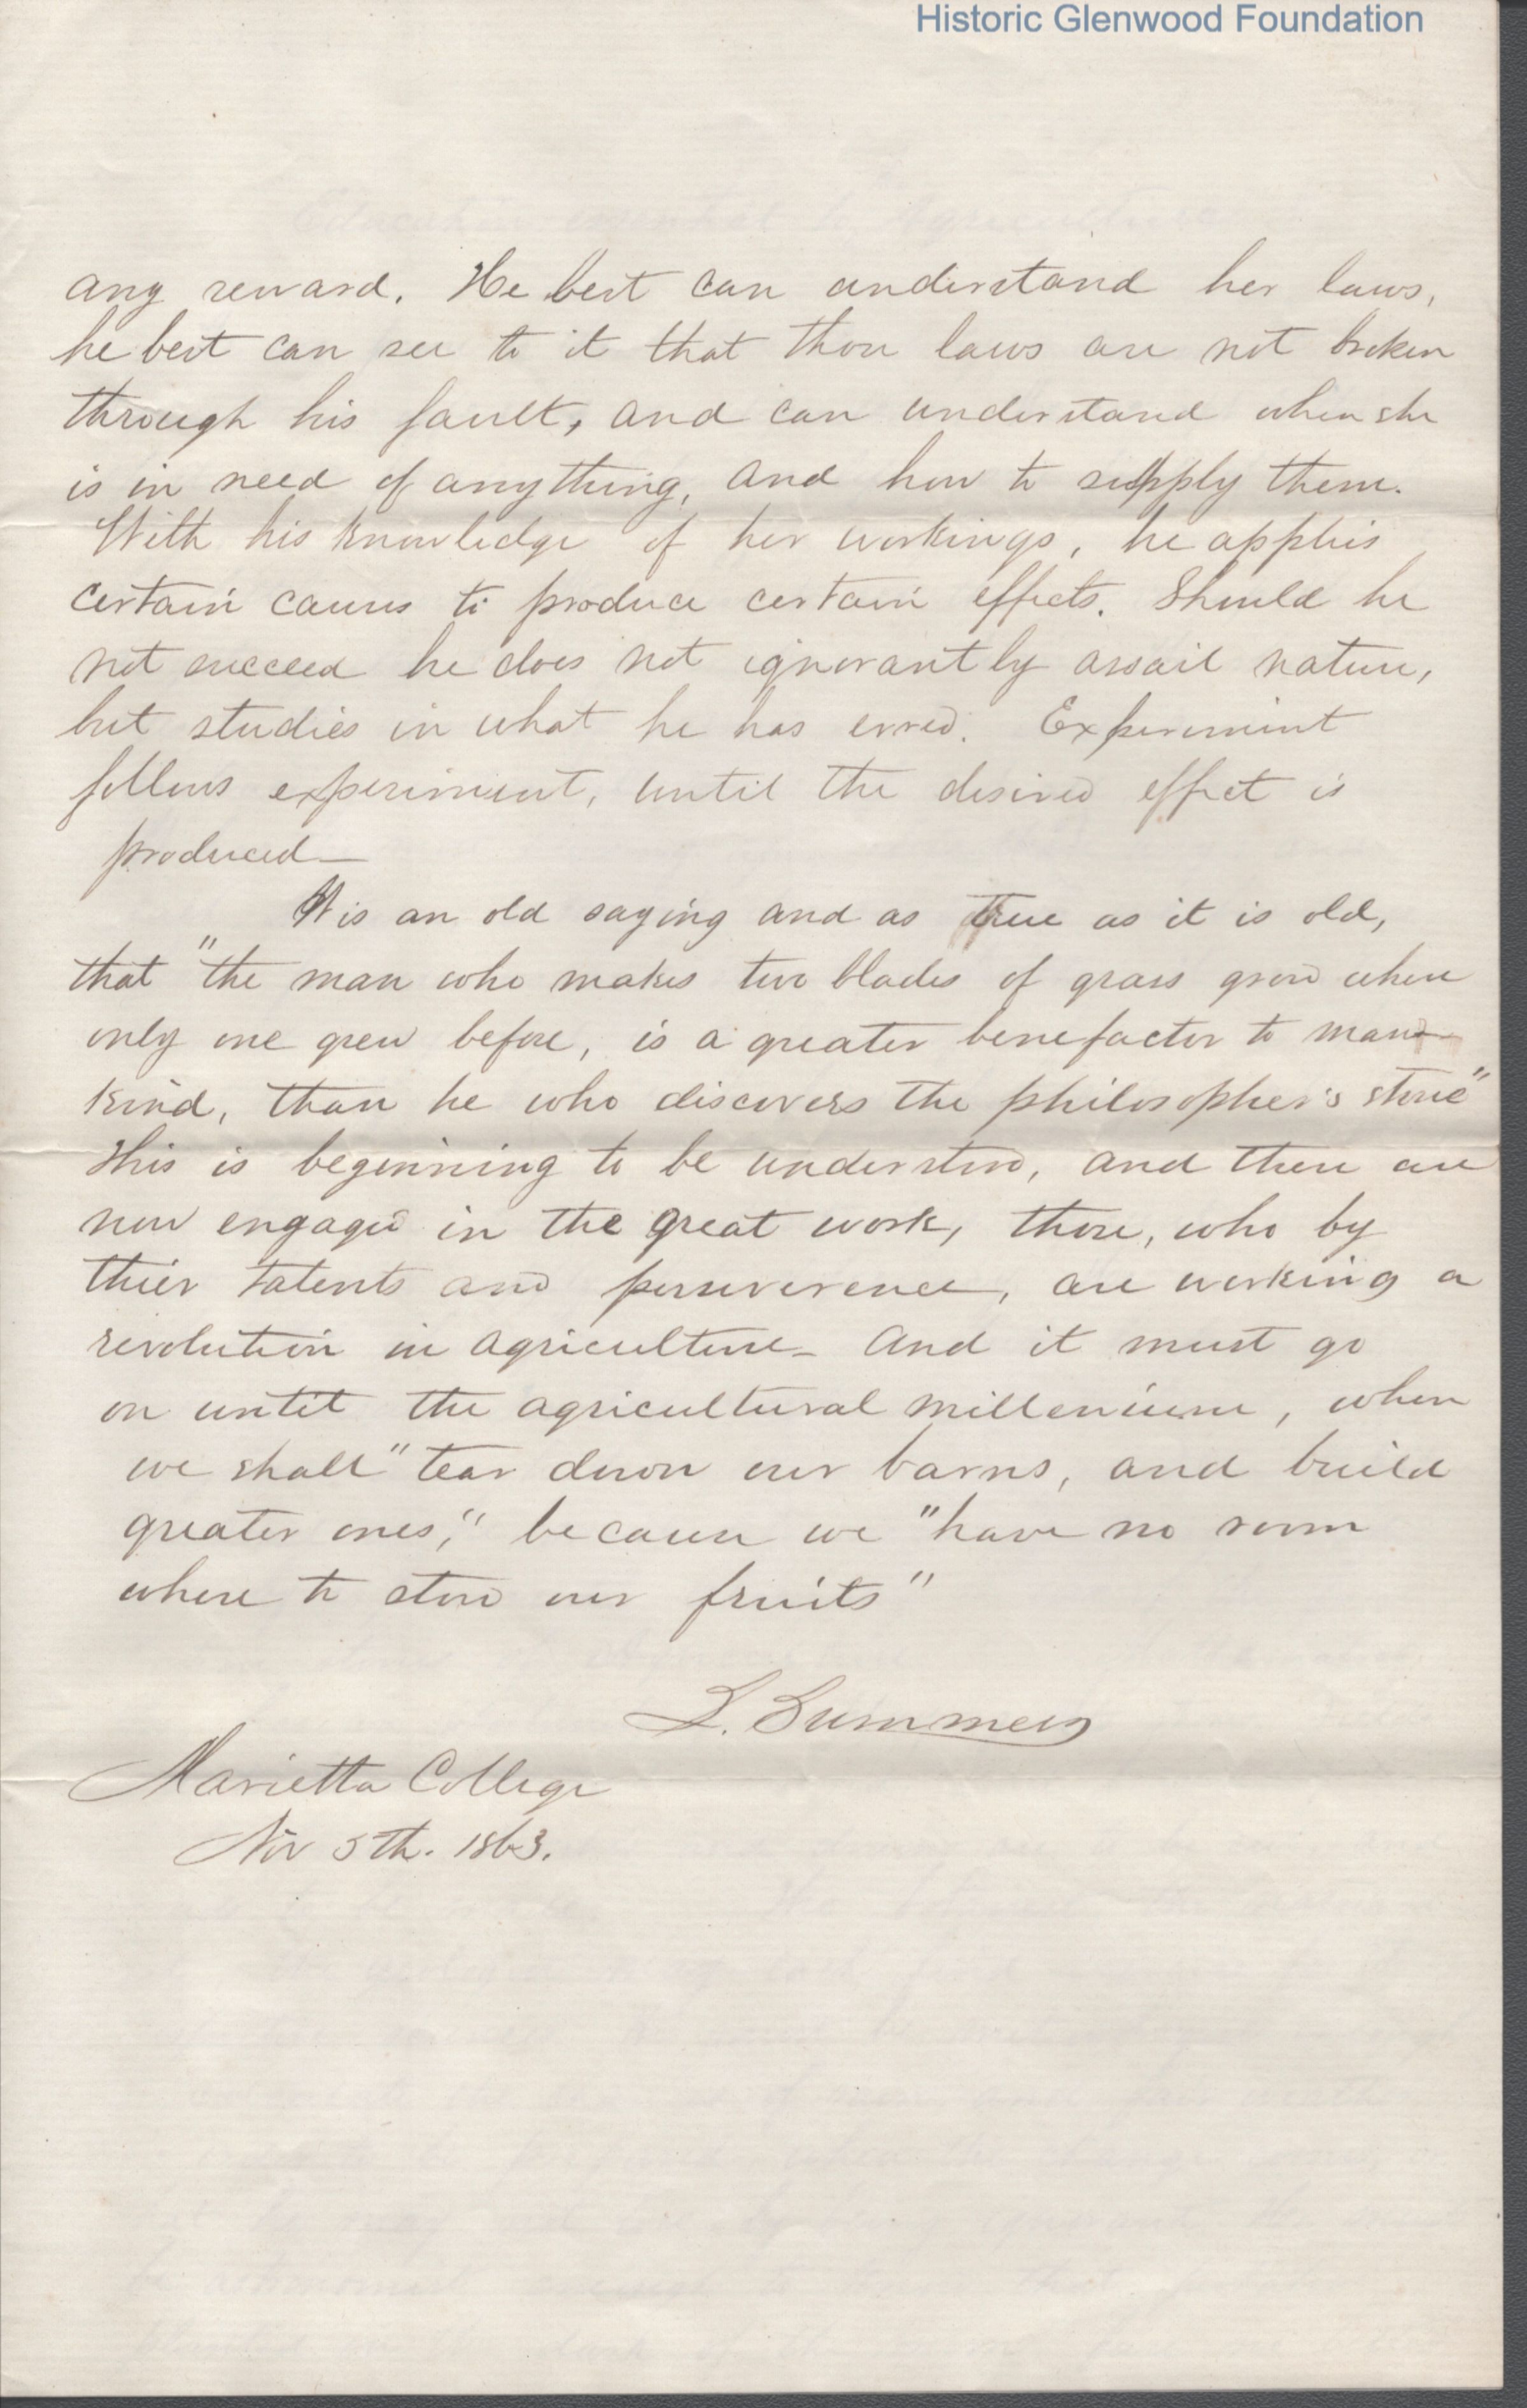 Historic Glenwood Foundation
any reward. He best can understand her laws,
he best can see to it that those laws are not broken
through his fault, and can understand when she
is in need of anything, and how to supply them.
With his knowledge of her workings, he applies
certain causes to produce certain effects. Should he
not succeed he does not ignorantly assail nature,
but studies in what he has erred. Experiment
follows experiment, until the desired effect is
produced—
It is an old saying and as true as it is old,
that "the man who makes two blades of grass grow where
only one grew before, is a greater benefactor to man-
kind, than he who discovers the philosopher's stone"
This is beginning to be understood, and there are
now engaged in the great work, those, who by
thier talents and perseverence, are working a
revolution in agriculture— And it must go
on until the agricultural millenium, when
we shall "tear down our barns, and build
greater ones," because we "have no room
where to store our fruits"
L. Summers
Marietta College
Nov 5th. 1863.